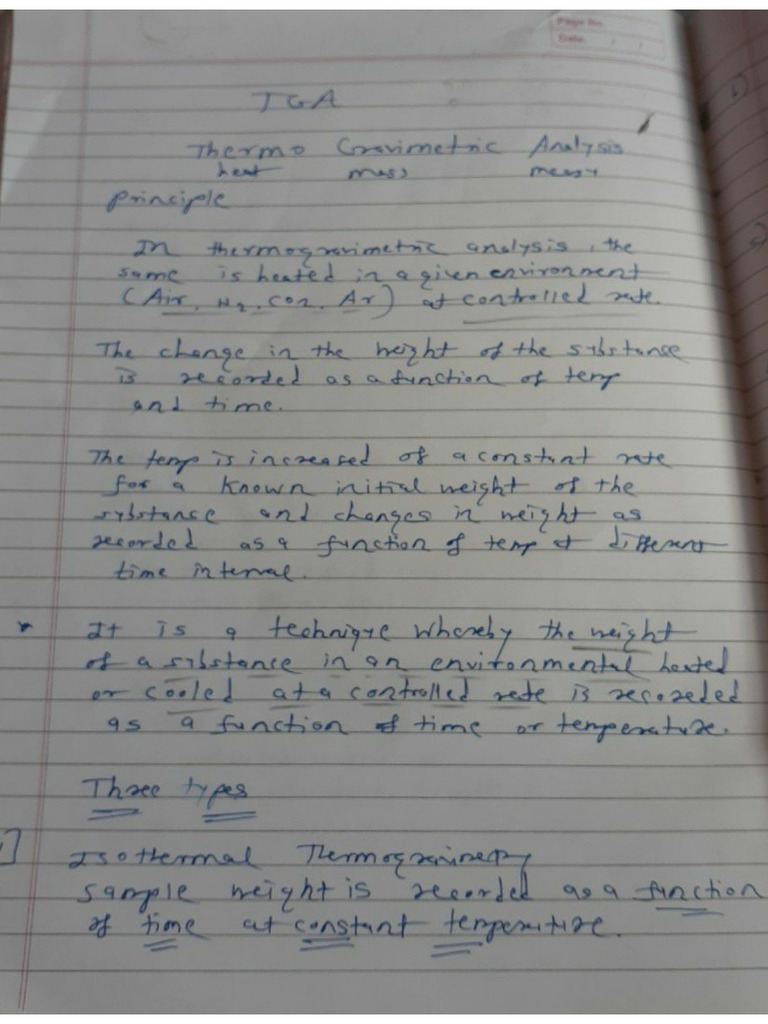 Page No.
Date: / /
TGA
Thermo Gravimetric Analysis
heat mass
principle
In thermogravimetric analysis, the
same is heated in a given environment
(Air, N2, CO2, Ar) at controlled rate.
The change in the weight of the substance
is recorded as a function of temp
and time.
The temp is increased of a constant rate
for a known initial weight of the
substance and changes in weight as
recorded as a function of temp at different
time interval.
It is a technique whereby the weight
of a substance in an environmental heated
or cooled at a controlled rate is recorded
as a function of time or temperature.
Three types
Isothermal Thermogravimetry
sample weight is recorded as a function
of time at constant temperature.